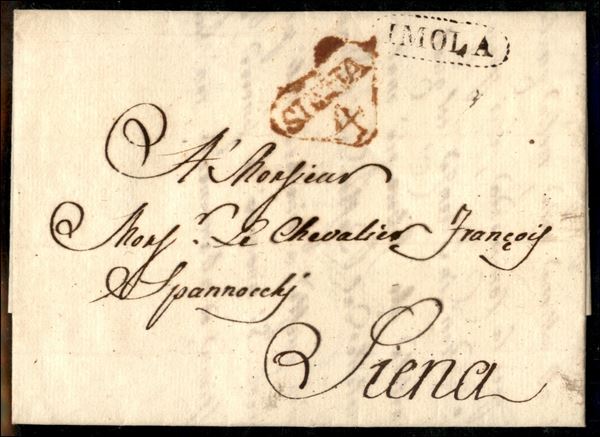 IMOLA
SIENA
4
A' Monsieur
Mons.r Le Chevalier François
Spannocchj
Siena